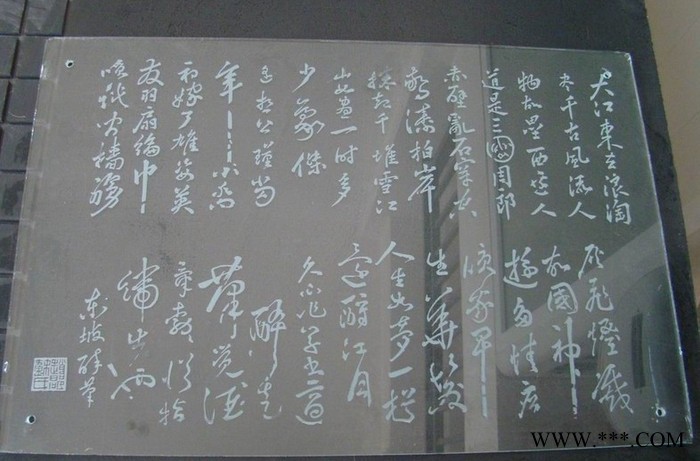 大江東去浪淘
尽千古風流人
物故壘西邊人
道是三國周郎
赤壁亂石穿空
驚濤拍岸
捲起千堆雪江
山如畫一時多
少豪傑
遙想公瑾當
年小喬
初嫁了雄姿英
發羽扇綸巾
談笑間檣櫓
灰飛煙滅
故國神
遊多情應
笑我早
生華髮
人生如夢一樽
還酹江月
久不作草書適
醉走
筆覺酒
氣勃勃從指
端出也
東坡醉筆
WWW.***.COM